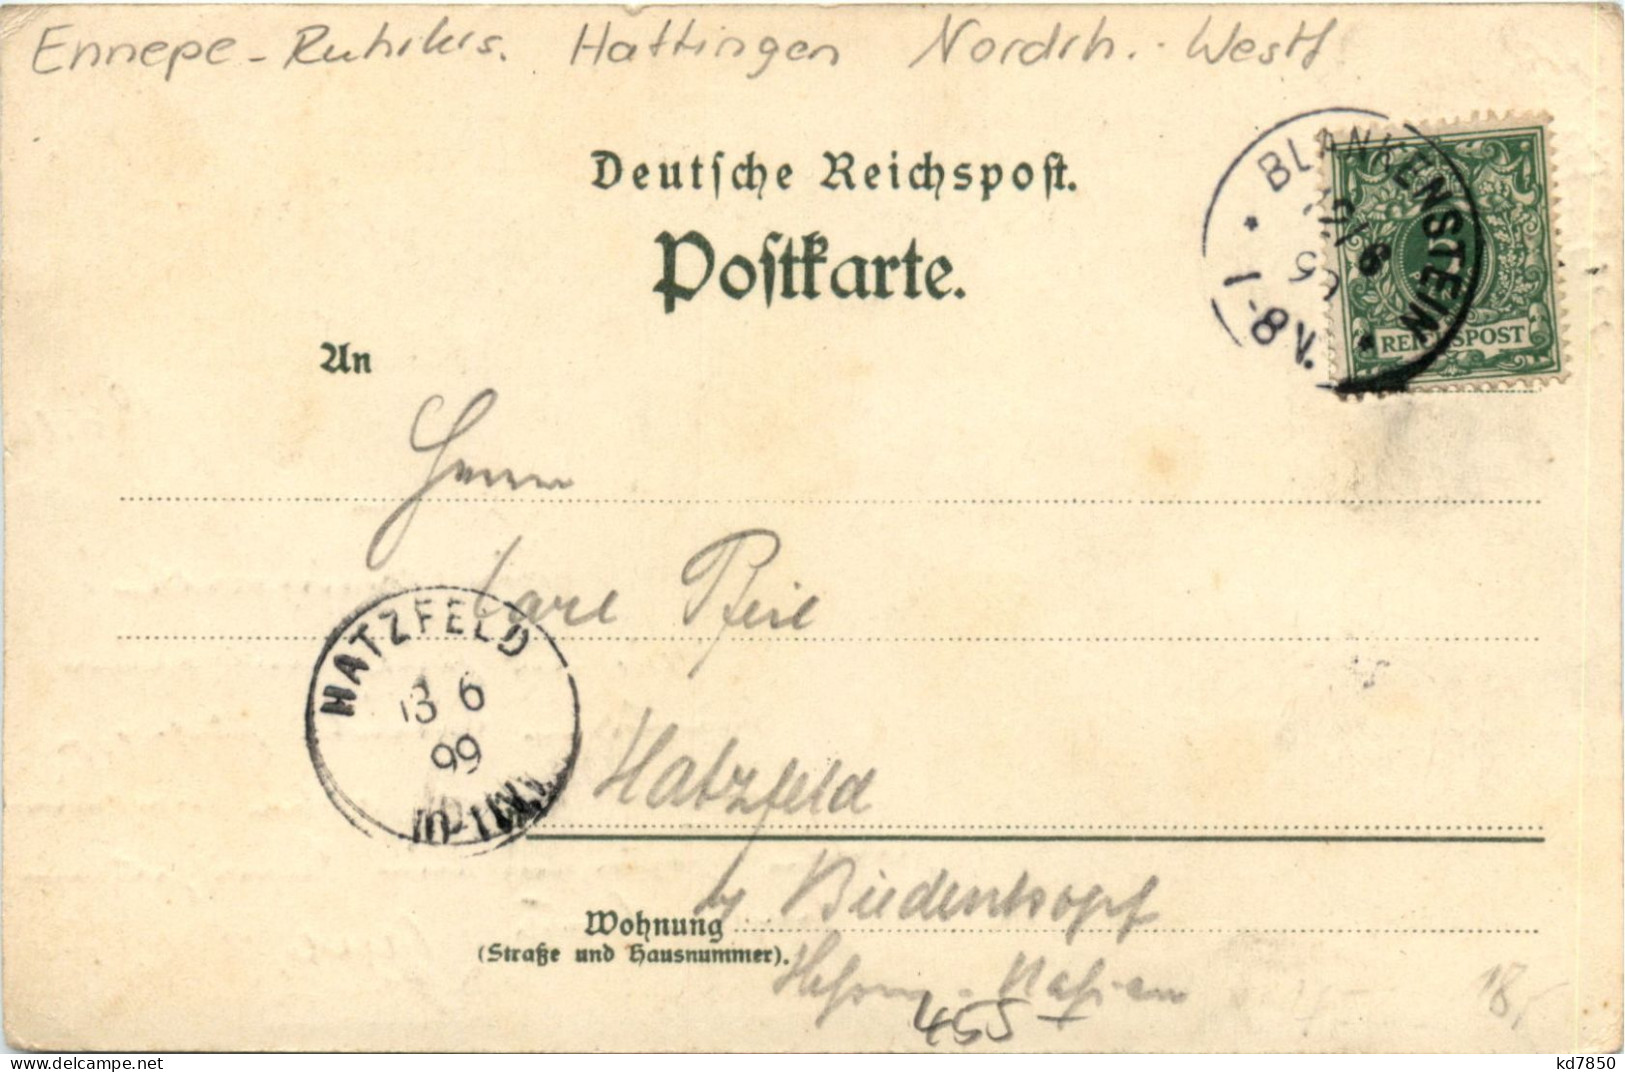 Ennepe-Ruhrkrs. Hattingen Nordrh.-Westf
Deutsche Reichspost.
Postkarte.
BLANKENSTEIN
6
1-8 V.
REICHSPOST
An
Herrn
Carl Pfeil
HATZFELD
13 6
99
Hatzfeld
Biedenkopf
Wohnung
(Straße und Hausnummer).
Hessen-Nassau
455
18,-
kd7850